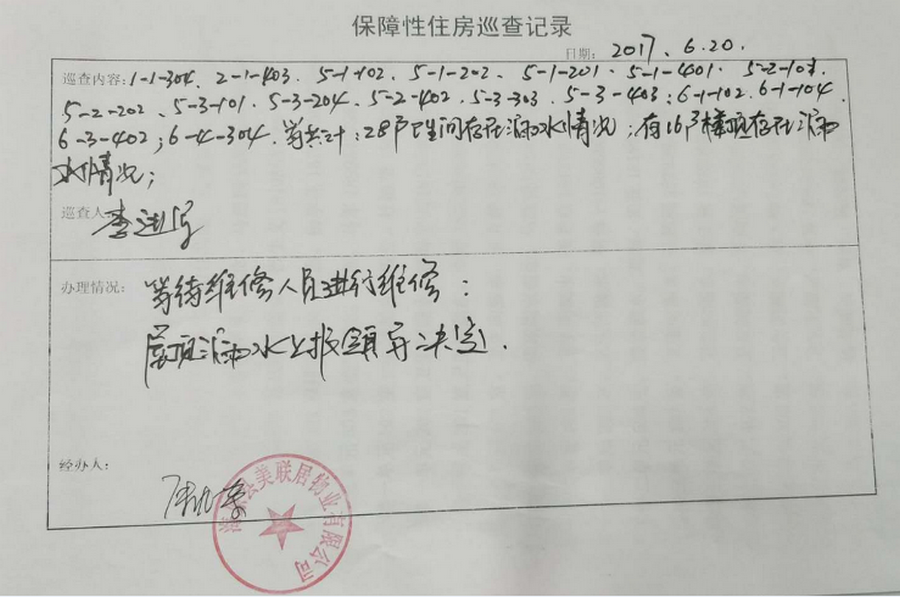 保障性住房巡查记录
日期: 2017.6.20.
巡查内容: 1-1-304. 2-1-403. 5-1-102. 5-1-202. 5-1-201. 5-1-401. 5-2-101.
5-2-202. 5-3-101. 5-3-204. 5-2-402. 5-3-303. 5-3-403; 6-1-102. 6-1-104.
6-3-402; 6-4-304. 等共计:28户卫生间存在漏水情况;有16户楼顶存在漏
水情况;
巡查人: 李进
办理情况: 等待维修人员进行维修:
屋顶漏水上报领导决定.
经办人:
美联居物业有限公司